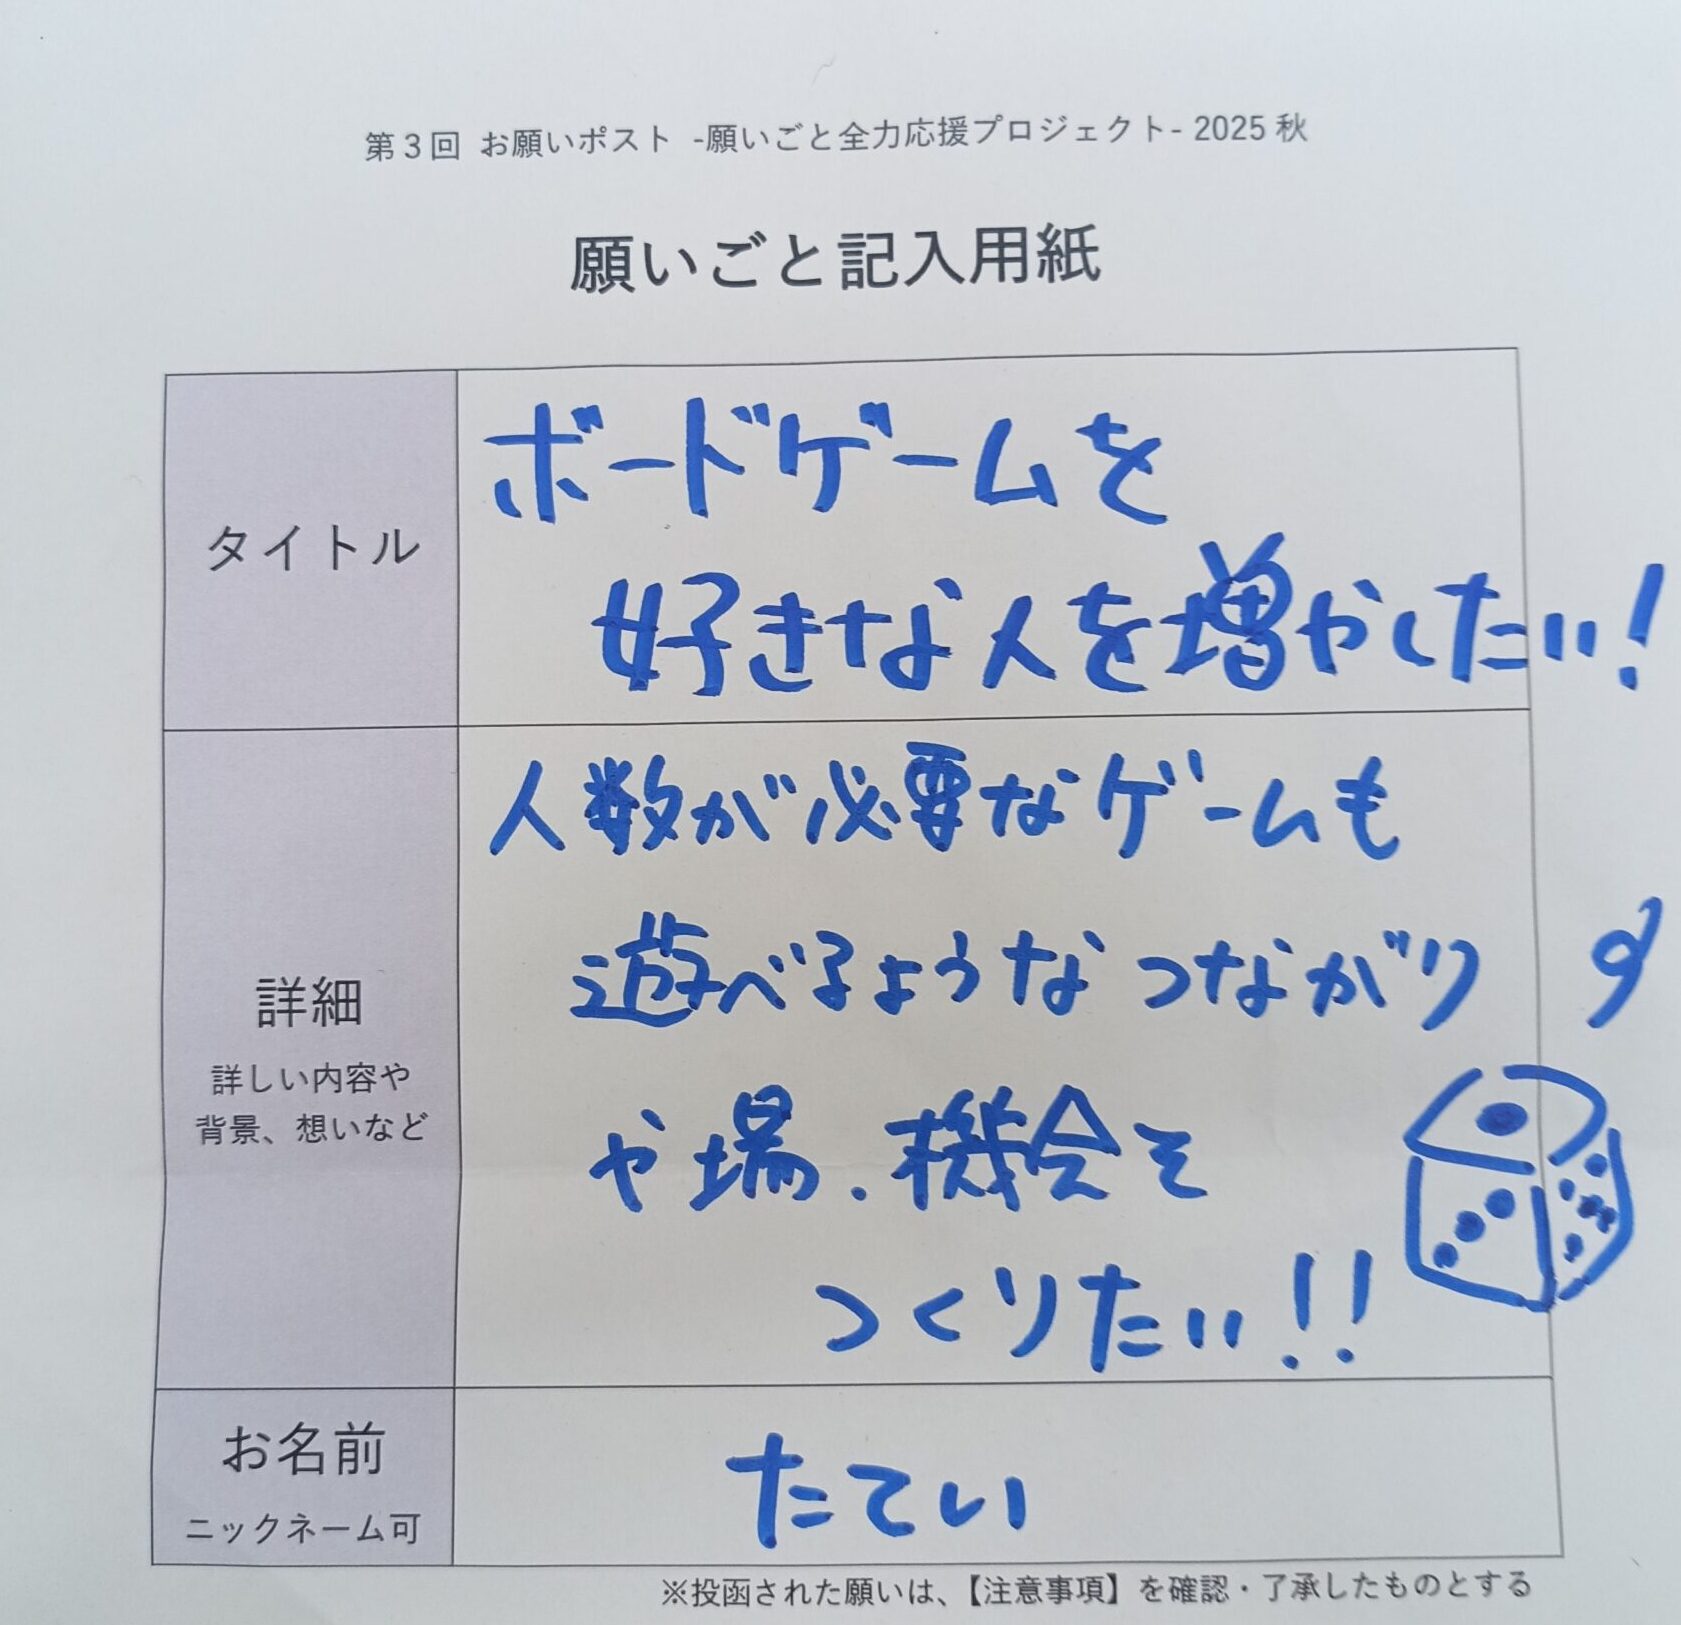 第3回 お願いポスト -願いごと全力応援プロジェクト- 2025 秋
願いごと記入用紙
タイトル
ボードゲームを
好きな人を増やしたい!
詳細
詳しい内容や
背景、想いなど
人数が必要なゲームも
遊べるようなつながり
や場.機会を
つくりたい!!
お名前
ニックネーム可
たてい
※投函された願いは、【注意事項】を確認・了承したものとする